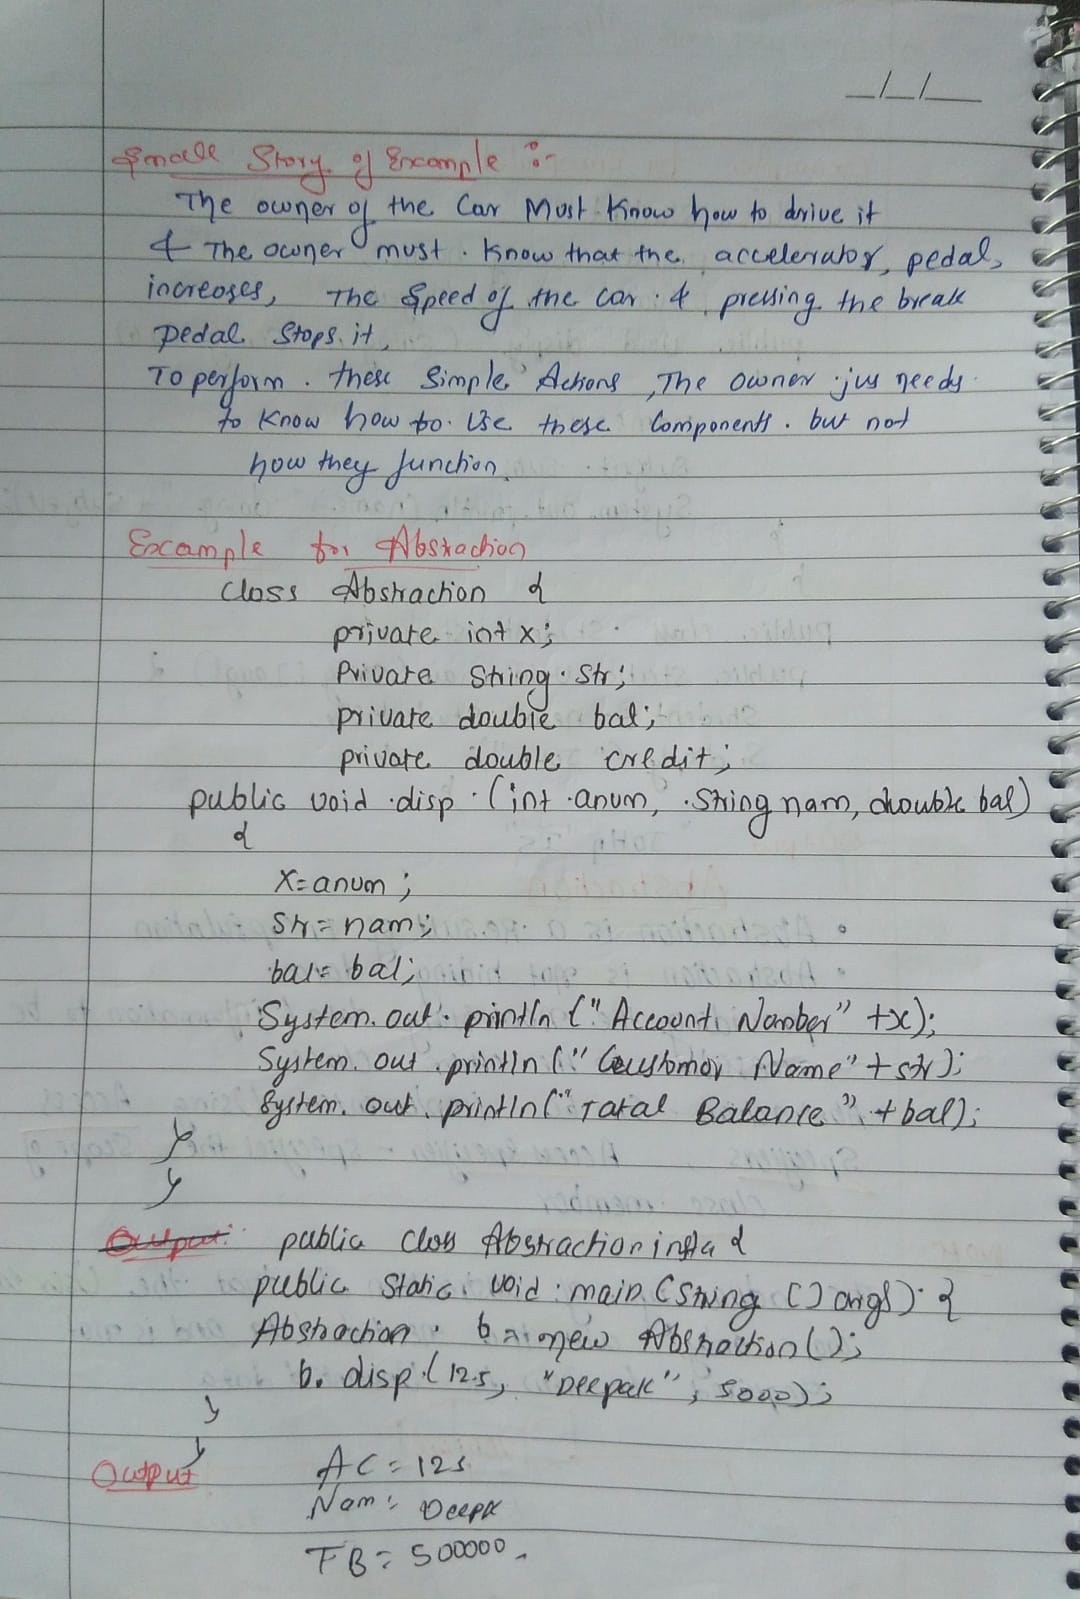 _/_/_
Small Story of Example :-
The owner of the Car Must Know how to drive it
& The owner must. Know that the accelerator, pedal,
increases, The Speed of the car. & pressing the break
pedal Stops it,
To perform. these Simple Actions, The owner jus needs
to Know how to. Use these Components. but not
how they function.
Example for Abstraction
class Abstraction {
private int x;
Private String. Str;
private double bal;
private double credit;
public void disp (int anum, String nam, double bal)
{
x=anum;
Str=nam;
bal= bal;
System.out.println ("Account Number" +x);
System.out.println ("Customer Name" + str);
System.out.println (" Total Balance" + bal);
}
}
Output: public class Abstraction {
public Static void main (String [] args) {
Abstraction b = new Abstraction();
b. disp (125, "Deepak", 5000);
}
}
Output AC = 125
Nam: Deepk
TB = 500000.